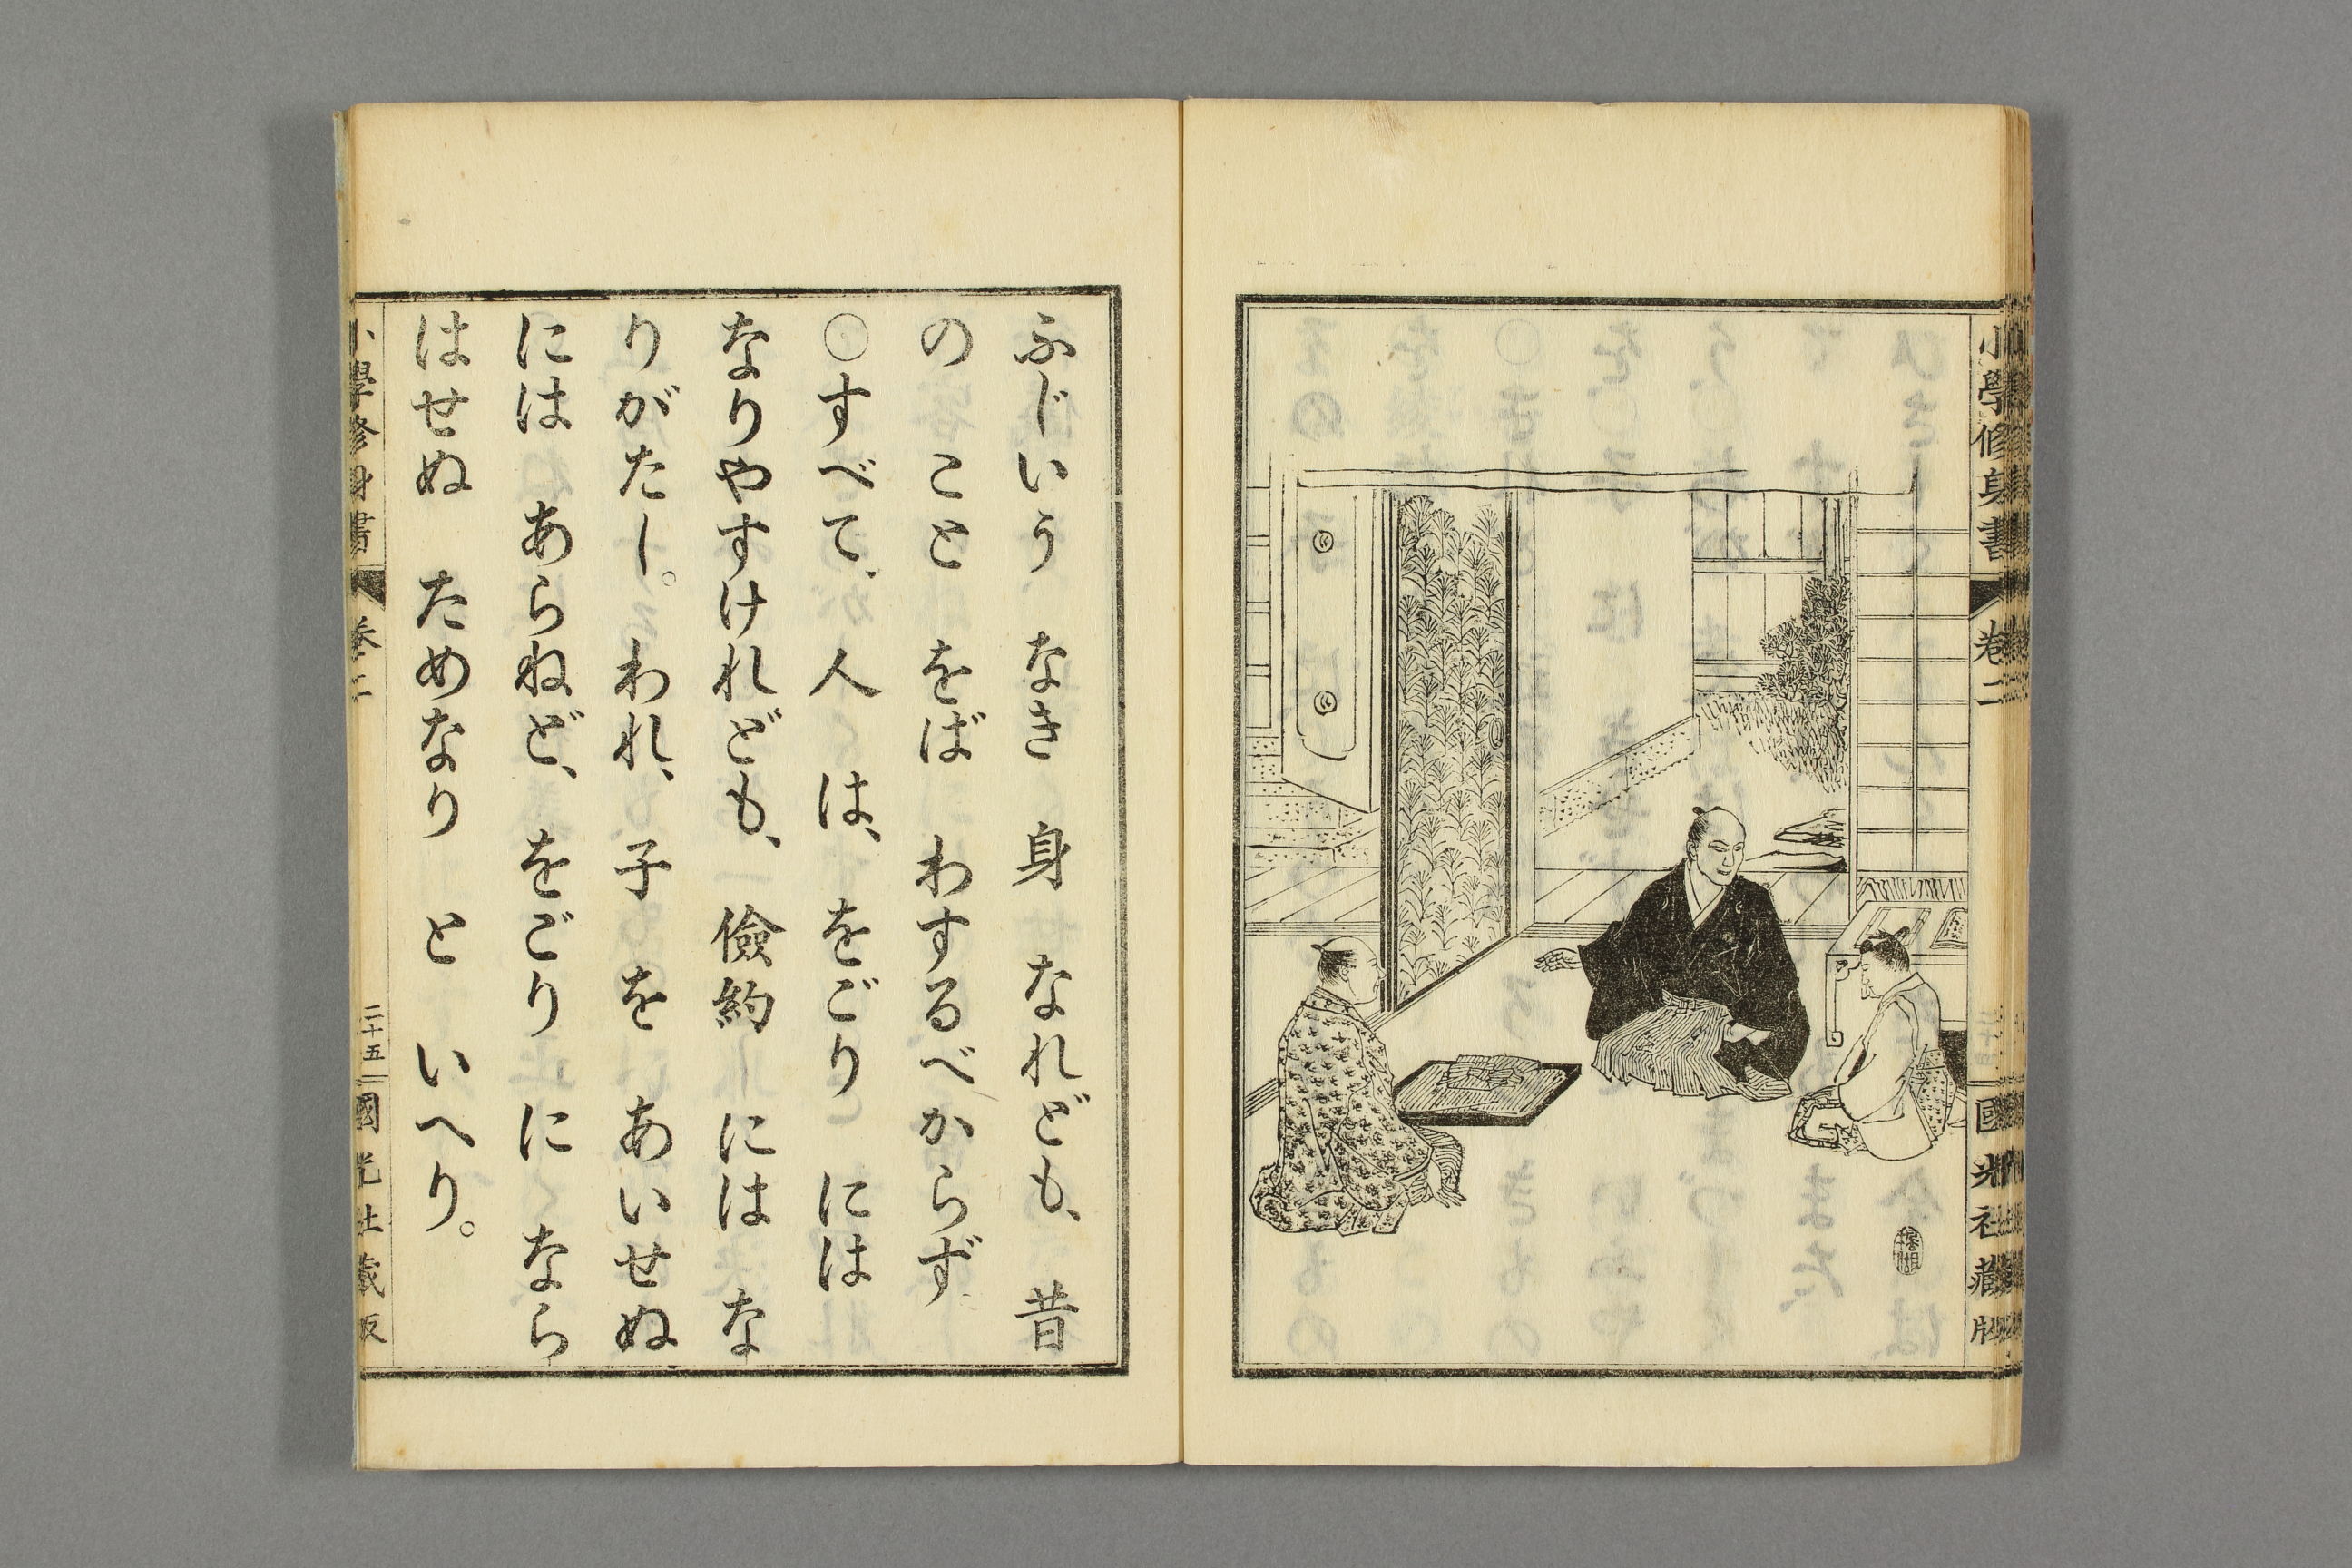 小學修身書
卷二
國光社藏版
ふじいう なき 身 なれども、 昔
の こと をば わするべからず
○すべて、 人 は、 をごり には
なりやすけれども、 儉約 には な
りがたし。 われ、 子 を あいせぬ
には あらねど、 をごり に なら
はせぬ ためなり と いへり。
小學修身書
卷二
二十五
國光社藏版